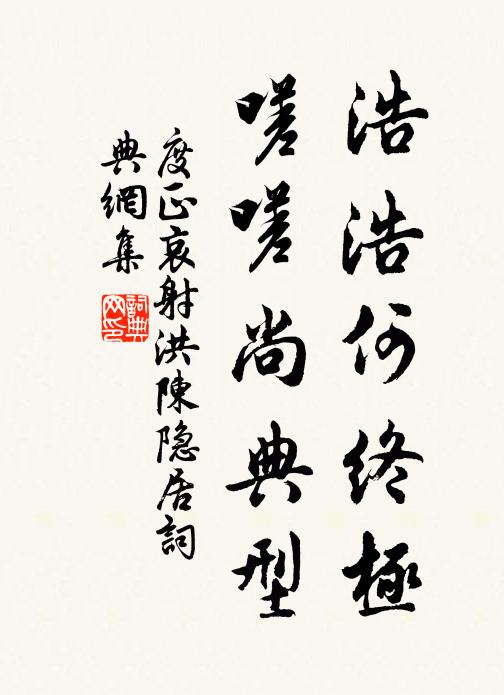 浩浩何終極
嗟嗟尚典型
度正哀射洪陳隐居詞
典網集
詞典
网印